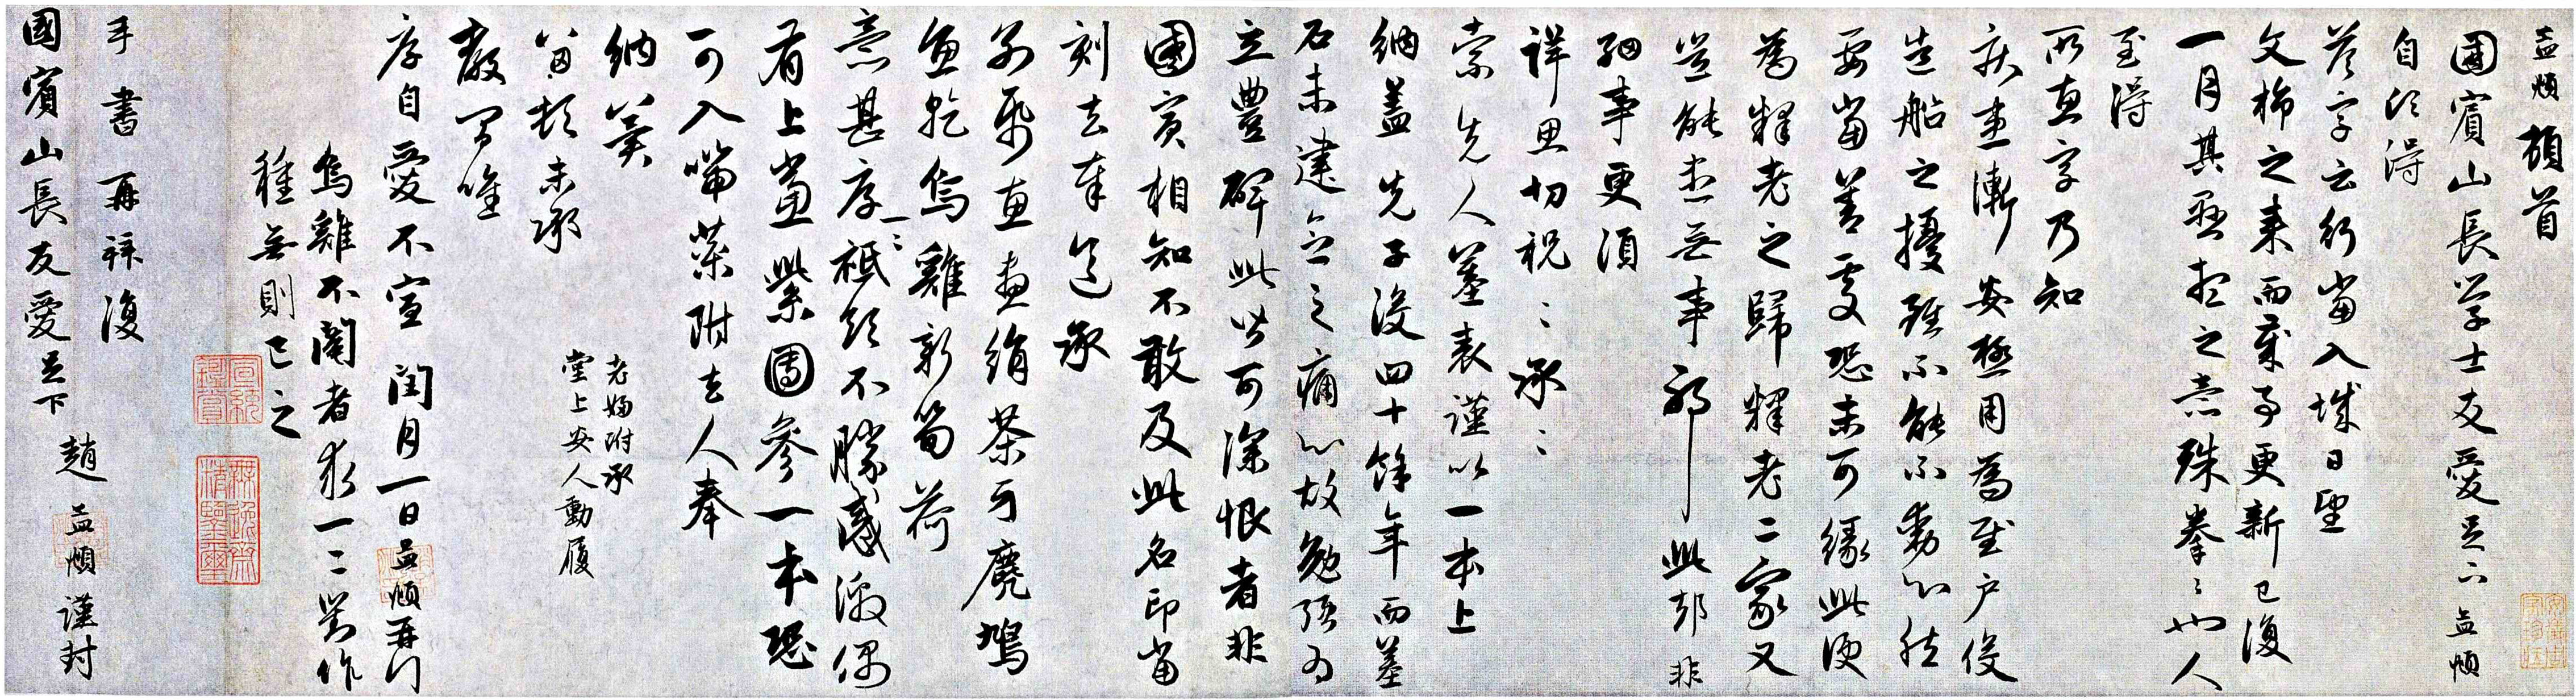 孟頫頓首
國賓山長學士友愛足下孟頫
自頃得
答字云行當入城日望
文旆之來而歲事更新已復
一月其爲想之意殊拳拳也人
至得
所惠字乃知
疾患漸安極用爲慰戶役
造船之擾雖不能不動心然
要當善處恐未可緣此便
爲釋老之歸釋老二家又
豈能盡無事邪此却非
細事更須
詳思切祝切祝承
索先人墓表謹以一本上
納蓋先子沒四十餘年而墓
石未建念之痛心故勉强為
立豐碑此皆可深恨者非
國賓相知不敢及此名印當
刻去奉送承
別紙惠畫絹茶牙麂鳩
魚乾烏雞新筍荷
意甚厚一一祗領不勝感激偶
有上黨紫團參一本恐
可入喘藥附去人奉
納冀
留頓未承
教間唯
老婦附承
堂上安人動履
厚自愛不宣閏月一日孟頫再拜
烏雞不闍者求一二對作
種無則已之
手書再拜復
國賓山長友愛足下
趙孟頫謹封